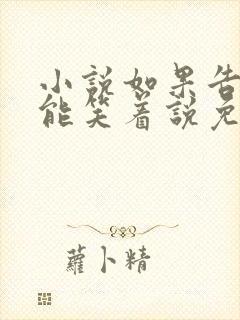 小說如果告
能笑着說免
蘿卜精